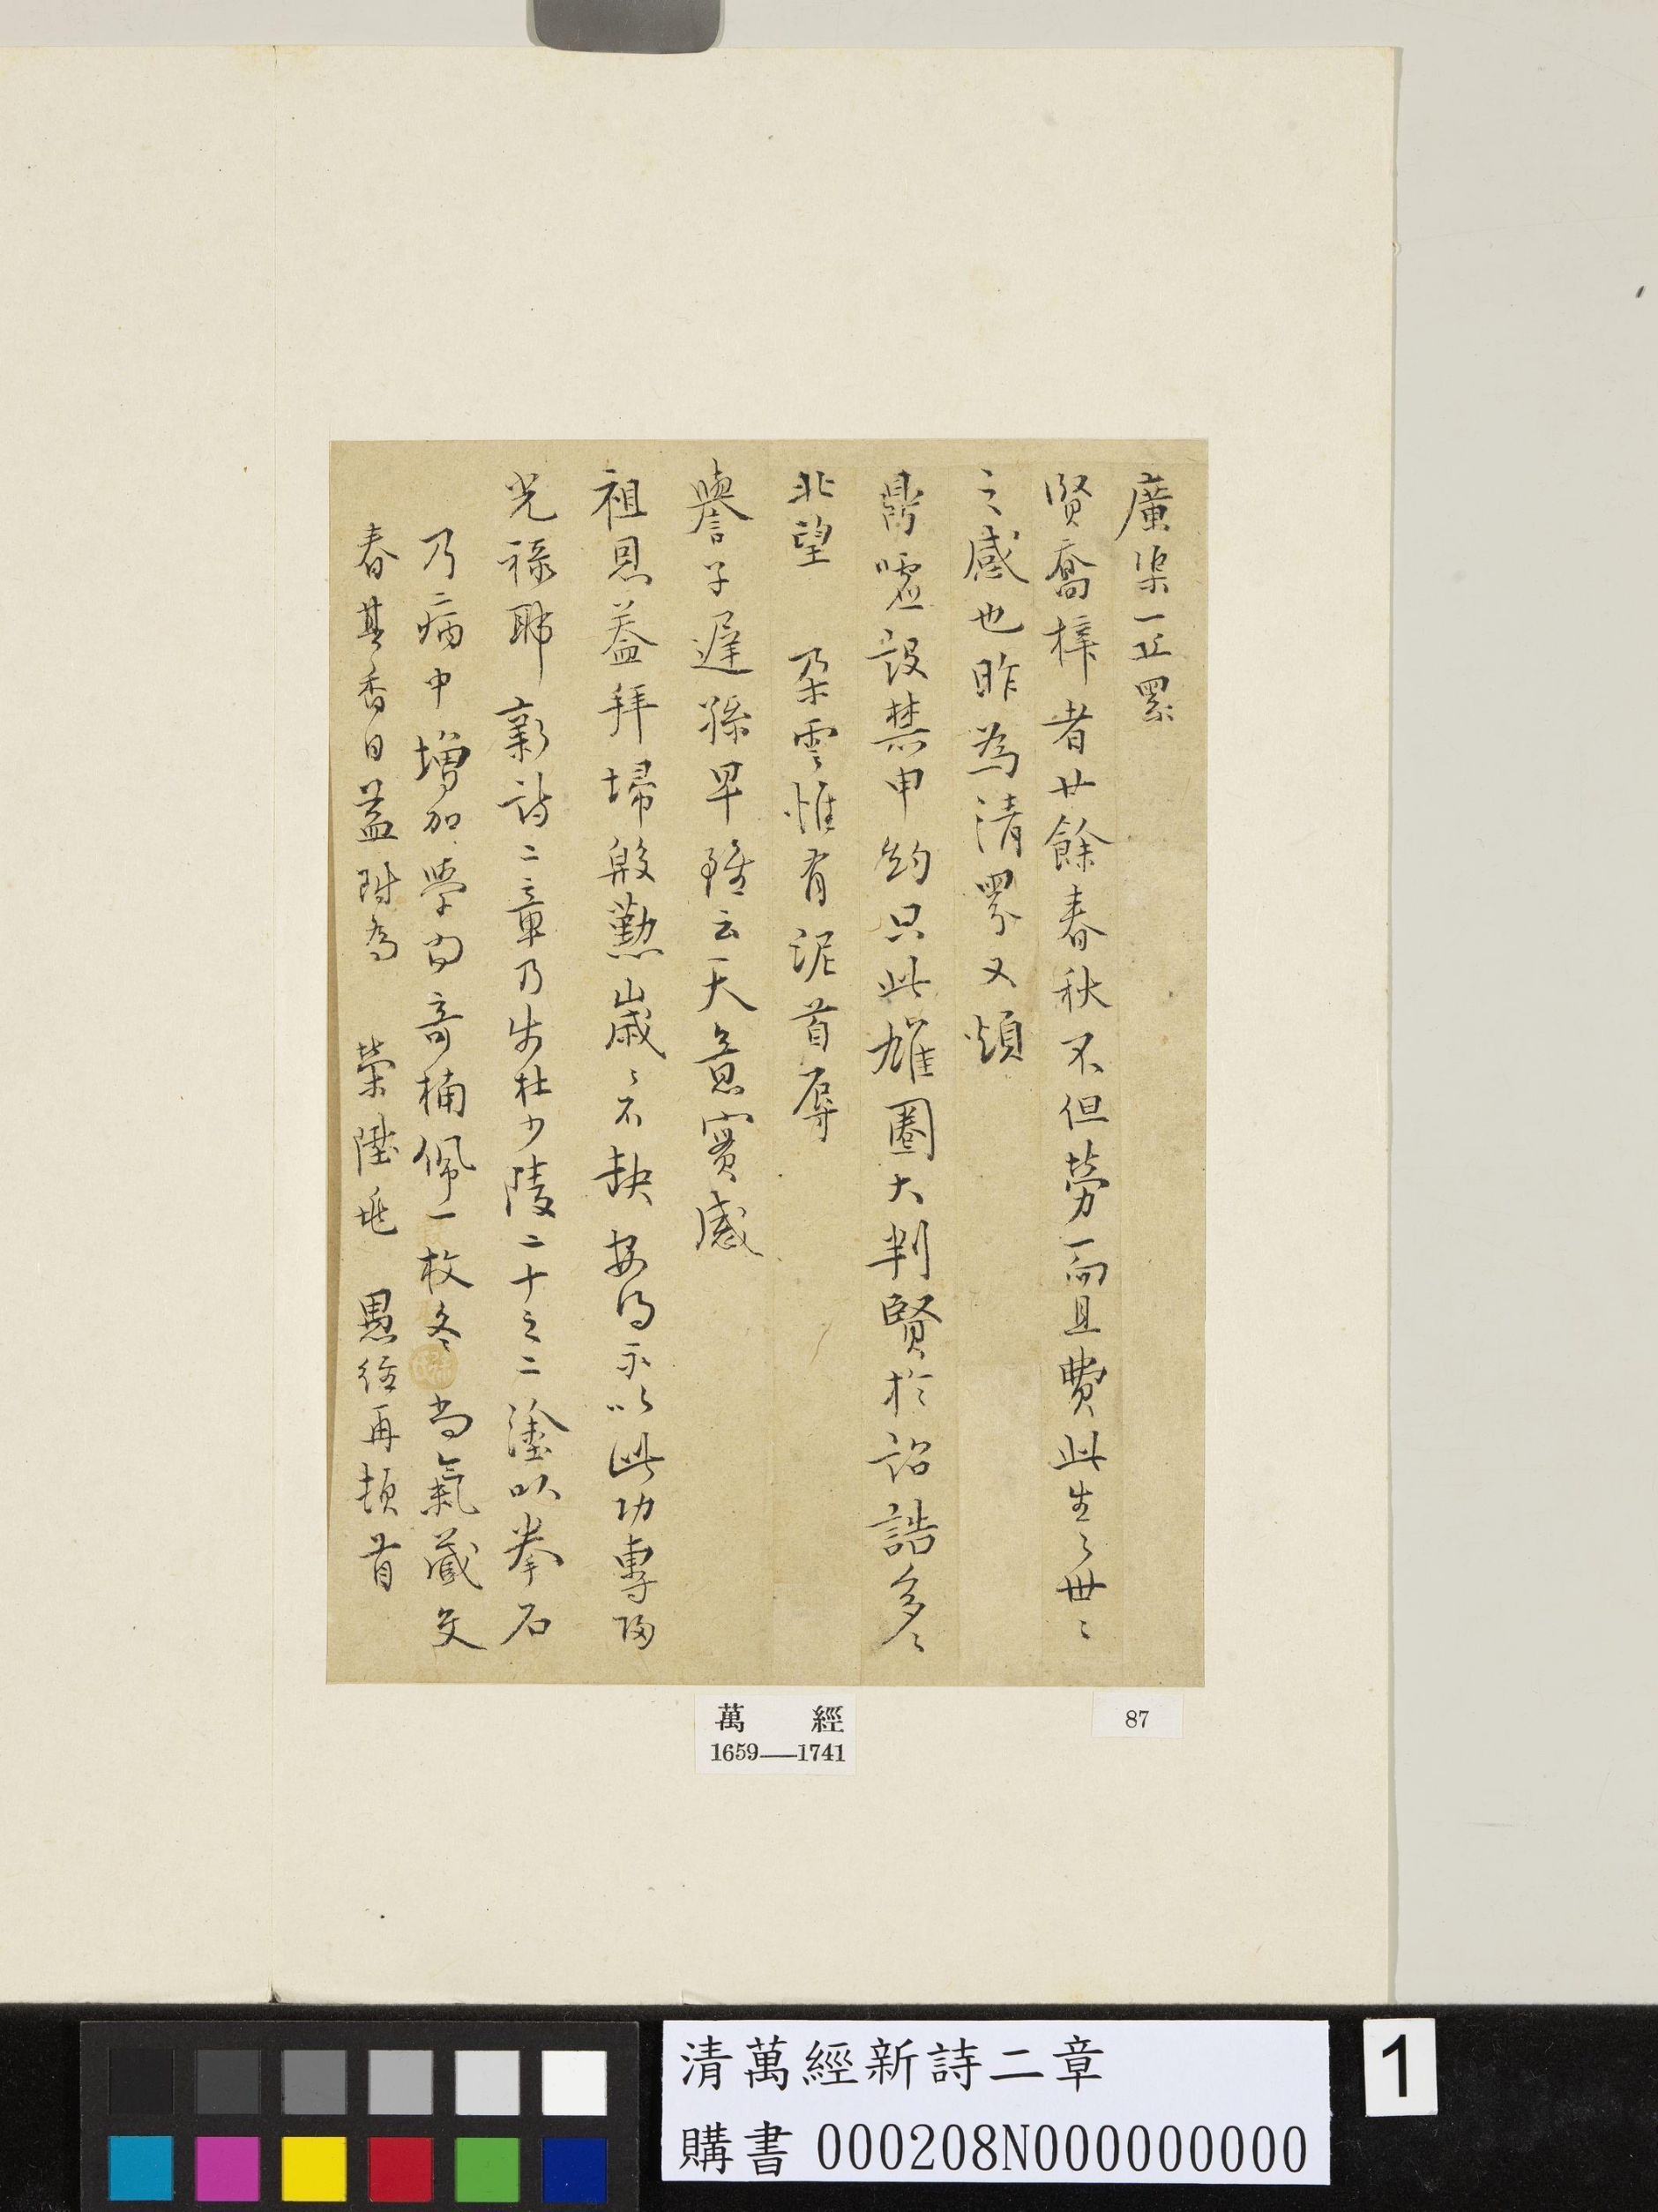 廣渠一正累
賢喬梓者廿餘春秋不但勞而且費此生々世々
之感也昨為清累又煩
鼎噓設禁申約只此雄圈大判賢於詔誥多々
北望 朶雲惟有泥首辱
譽子遲孫早雖云天意實感
祖恩益拜埽殷勤歲々不缺安得永以此功專歸
光祿耶 新詩二章乃步杜少陵二十之二塗以拳石
乃病中增加學問奇楠佩一枚冬尚氣藏文
春其香日益附為 榮陞兆 愚經再頓首
萬 經
1659—1741
87
清萬經新詩二章
購書 000208N000000000
1